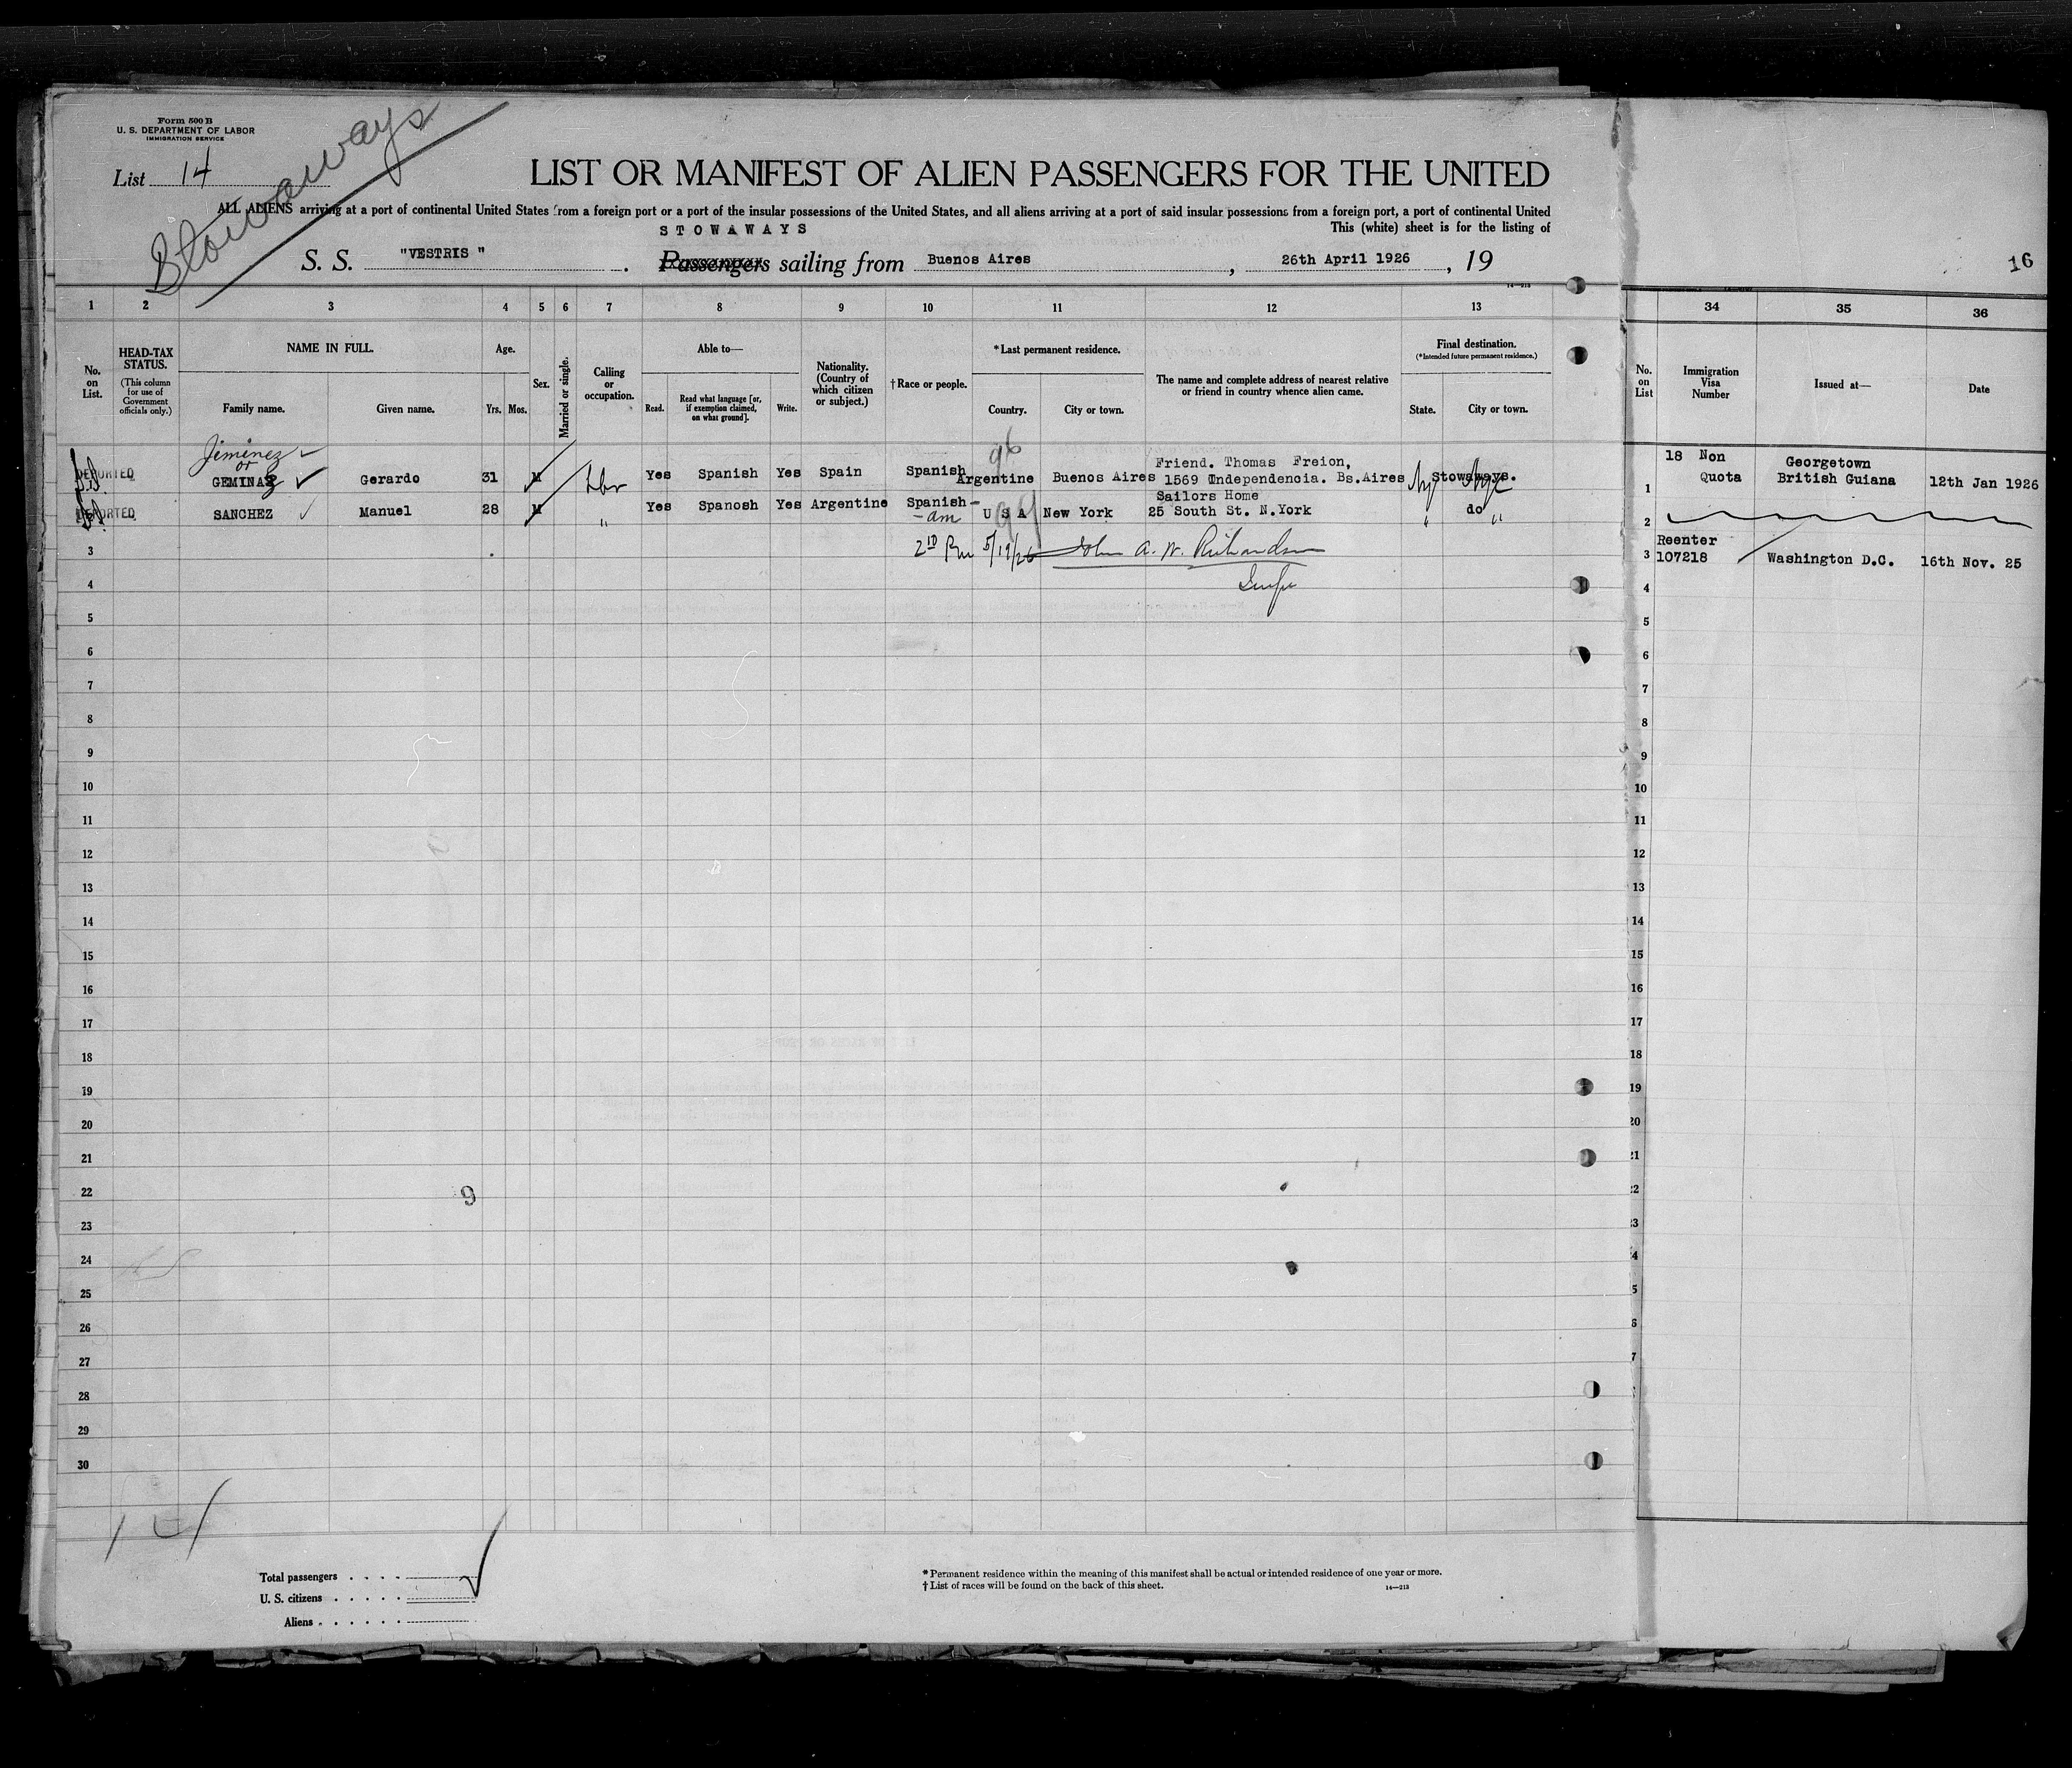 Form 500 B
U. S. DEPARTMENT OF LABOR
IMMIGRATION SERVICE
Stowaways
List 14
LIST OR MANIFEST OF ALIEN PASSENGERS FOR THE UNITED
ALL ALIENS arriving at a port of continental United States from a foreign port or a port of the insular possessions of the United States, and all aliens arriving at a port of said insular possessions from a foreign port, a port of continental United
STOWAWAYS
This (white) sheet is for the listing of
S. S. "VESTRIS" Passengers sailing from Buenos Aires, 26th April 1926, 19
14—213
16
1 2 3 4 5 6 7 8 9 10 11 12 13
34 35 36
No. on List.
HEAD-TAX STATUS.
(This column for use of Government officials only.)
NAME IN FULL.
Family name. Given name.
Age.
Yrs. Mos.
Sex.
Married or single.
Calling or occupation.
Able to—
Read.
Read what language [or, if exemption claimed, on what ground].
Write.
Nationality. (Country of which citizen or subject.)
† Race or people.
*Last permanent residence.
Country. City or town.
The name and complete address of nearest relative or friend in country whence alien came.
Final destination.
(*Intended future permanent residence.)
State. City or town.
No. on List
Immigration Visa Number
Issued at—
Date
Jiminez
or
DEPORTED GEMINAZ Gerardo 31 M Lbr Yes Spanish Yes Spain Spanish 96 Argentine Buenos Aires Friend. Thomas Freion,
1569 Independencia. Bs.Aires Ny Stowaways.
DEPORTED SANCHEZ Manuel 28 M " Yes Spanosh Yes Argentine Spanish-
-am U S A 99 New York Sailors Home
25 South St. N.York " do "
3 2ND Rm 5/19/26 John A. W. Richardson
Insp
4
5
6
7
8
9
10
11
12
13
14
15
16
17
18
19
20
21
22 9
23
24
25
26
27
28
29
30
1 18 Non Quota Georgetown British Guiana 12th Jan 1926
2
3 Reenter 107218 Washington D.C. 16th Nov. 25
4
5
6
7
8
9
10
11
12
13
14
15
16
17
18
19
20
21
22
23
4
5
6
7
14
Total passengers
U. S. citizens
Aliens
* Permanent residence within the meaning of this manifest shall be actual or intended residence of one year or more.
† List of races will be found on the back of this sheet.
14—213